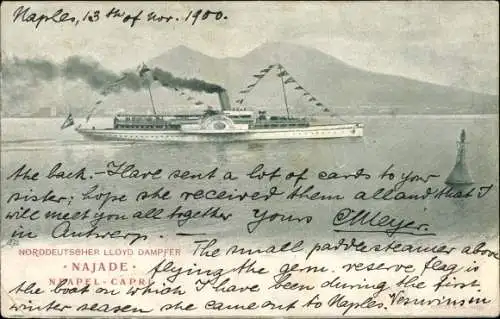 Naples, 13th of Nov. 1900.
the back. - Have sent a lot of cards to your
sister; hope she received them all and that I
will meet you all together Yours CMeyer.
in Antwerp. -
NORDDEUTSCHER LLOYD DAMPFER The small paddlesteamer above
· NAJADE · flying the germ. reserve flag is
NEAPEL - CAPRI the boat on which I have been during the first
winter season she came out to Naples. Vesuvius in